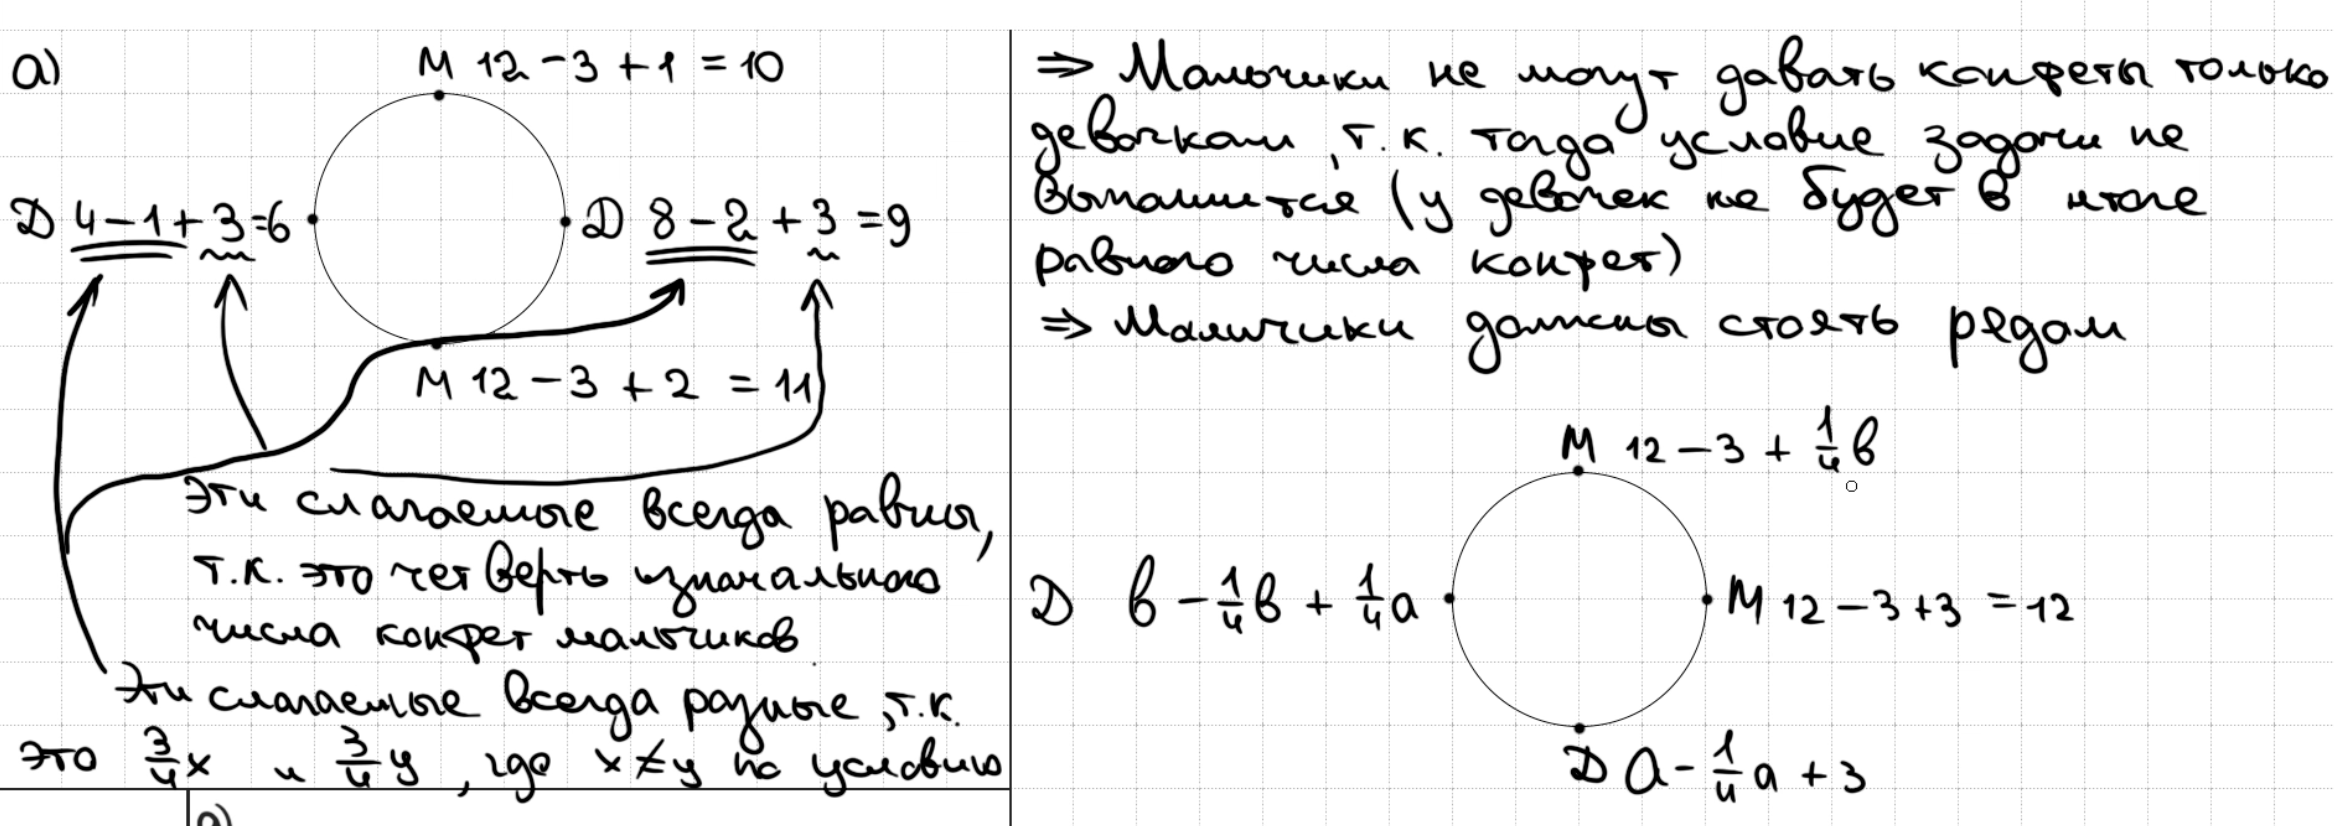 а)
М 12 - 3 + 1 = 10
Д 4 - 1 + 3 = 6
Д 8 - 2 + 3 = 9
М 12 - 3 + 2 = 11
Эти слагаемые всегда равны,
т.к. это четверть изначального
числа конфет мальчиков
Эти слагаемые всегда разные, т.к.
это 3/4 x и 3/4 y, где x ≠ y по условию
⇒ Мальчики не могут давать конфеты только
девочкам, т.к. тогда условие задачи не
выполнится (у девочек не будет в итоге
равного числа конфет)
⇒ Мальчики должны стоять рядом
М 12 - 3 + 1/4 в
Д в - 1/4 в + 1/4 а
М 12 - 3 + 3 = 12
Д а - 1/4 а + 3